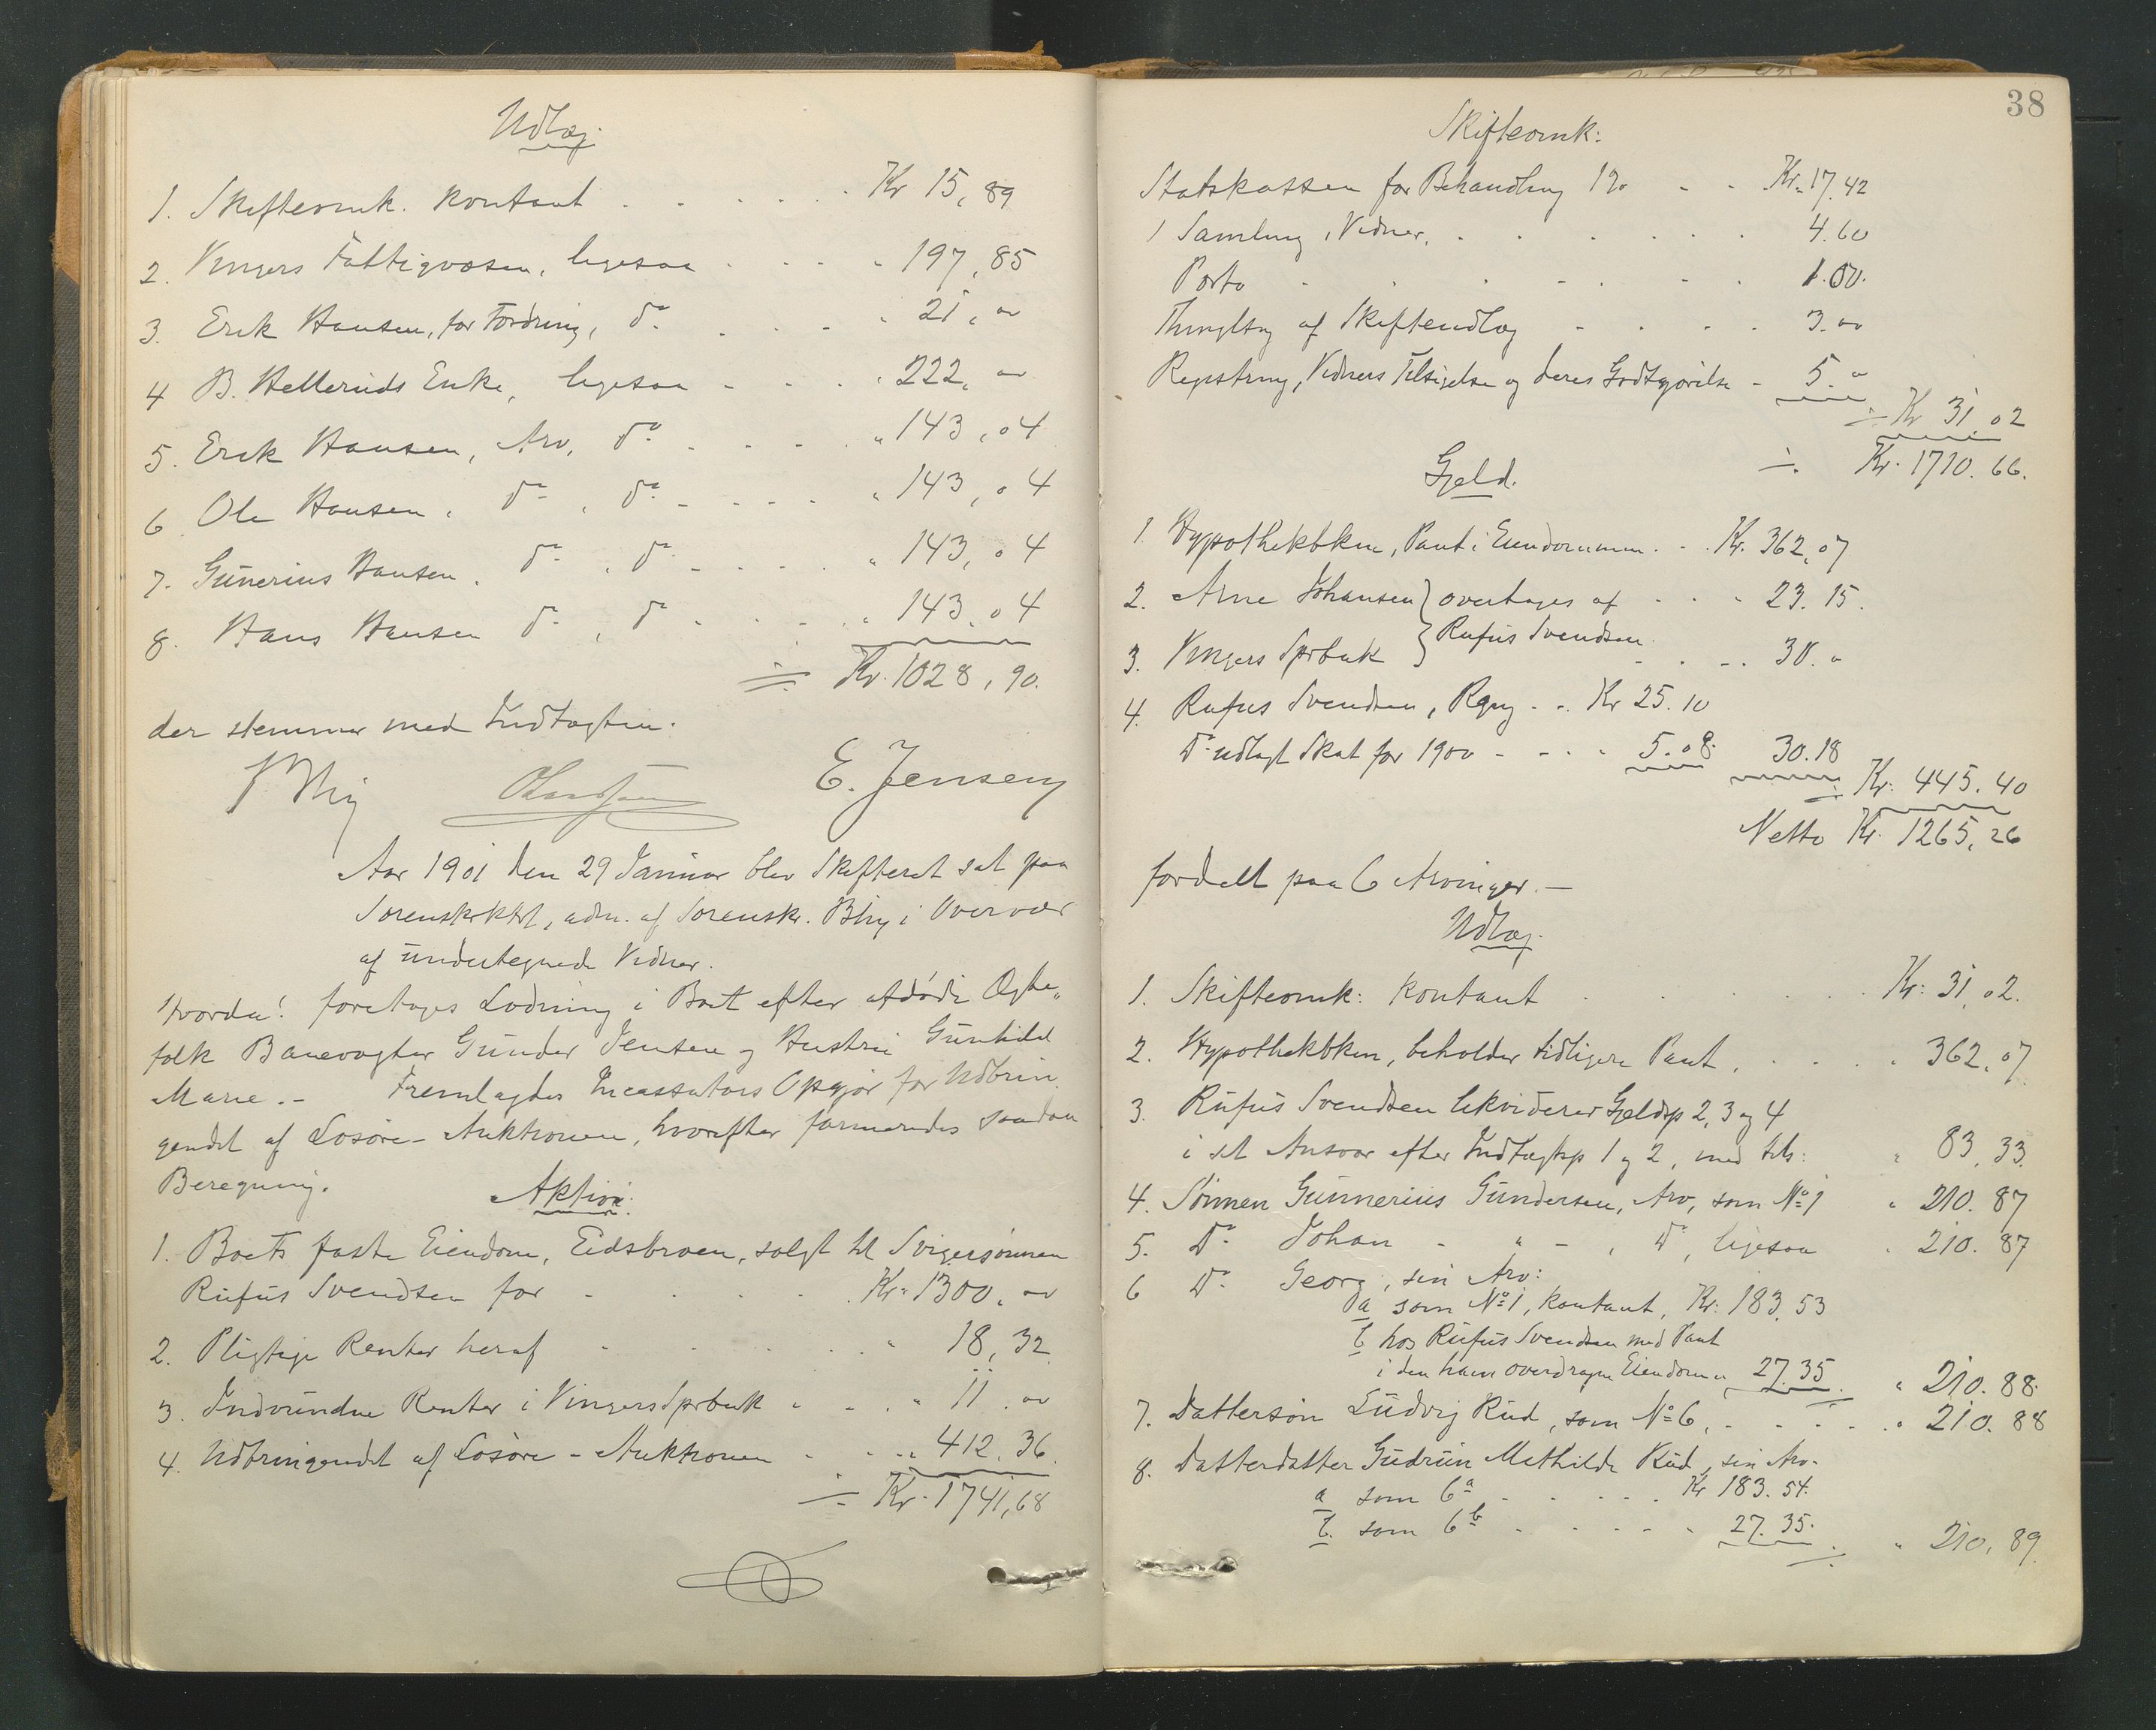 Udlæg.
1. Skifteomk. kontant . . . . . . Kr 15,89
2. Vingers Fattigvæsen, ligesaa . . . . " 197,85
3. Erik Hansen, for Fordring, do. . . . . " 21,00
4 B. Hellerüds Enke, ligesaa - . . . " 222,00
5. Erik Hansen, Arv, do - . . - . " 143,04
6 Ole Hansen, do , do - . . . . " 143,04
7. Günerius Hansen, do , do - . . . . " 143,04
8. Hans Hansen do , do . . . . . " 143.04
= Kr. 1028,90.
der stemmer med Indtægten.
E. Jensen
Aar 1901 den 29 Januar blev Skifteret sat paa
Sorenskrktrt, adm. af Sorenskr. Bhy i Overvær
af undertegnede Vidner.
Hvorda! foretoges Lodning i Boet efter afdøde Ægte-
folk Banevogter Günder Jensen og Hustru Günhild
Marie. - Fremlagdes Incassators Opgjør for Udbrin
gendet af Løsøre-Auktionen, hvorefter formeredes saadan
Beregning.
Aktiva:
1. Boets faste Eiendom, Eidsbroen, solgt til Svigersønnen
Rüfüs Svendsen for - . . . . Kr. 1300,00
2. Pligtige Renter heraf - . . . . . " 18,32
3. Indvundne Renter i Vingers Sprbnk " - . . " 11.00
4. Udbringendet af Løsøre-Auktionen - . . . " 412.36
= Kr. 1741,68
38
Skifteomk:
Statskassen for Behandling 1% - - . Kr. 17.42
1 Samling, Vidner, . . . . . . 4.60
Porto - . . . - . - . 1.00.
Thinglsng af Skifteudlæg - . . . 3.00
Registrring, Vidners Tilsigelse og deres Godtgjørelse - 5.00
= Kr 31,02
÷ Kr. 1710.66.
Gjeld.
1. Hypothekbken, Pant i Eiendommen. . . Kr. 362,07
2. Arne Johansen } overtages af . . . 23.15.
3. Vingers Sprbnk } Rufüs Svendsen - . . . 30.00
4. Rufus Svendsen, Rgng . . . Kr 25.10
Do. udlagt Skat for 1900 - - . . 5.08. 30.18
= Kr. 445.40
Netto Kr. 1265,26
fordelt paa 6 Arvinger. -
Udlæg.
1. Skifteomk: kontant . . . . . . Kr: 31,02.
2. Hypothekbken, beholder tidligere Pant, . . . . " 362,07
3. Rüfüs Svendsen likviderer Gjeldsp 2, 3 og 4
i sit Ansvar efter Indtægtsp 1 og 2, med tils: " 83,33.
4. Sønnen Günnerius Gündersen, Arv, som No 1 " 210.87
5. Do Johan - " - , Do, ligesaa " 210.87
6 Do. Georg, sin Arv:
a som No 1, kontant, Kr: 183,53
b hos Rüfüs Svendsen med Pant
i den ham overdragne Eiendom " 27.35 " 210.88.
7. Dattersøn Lüdvig Rüd, som No 6, - . . . . " 210.88
8. Datterdatter Güdrün Mathilde Rüd, sin Arv-
a som 6a - . . . . Kr 183.54.
b. som 6b - . . . . " 27.35. " 210,89.